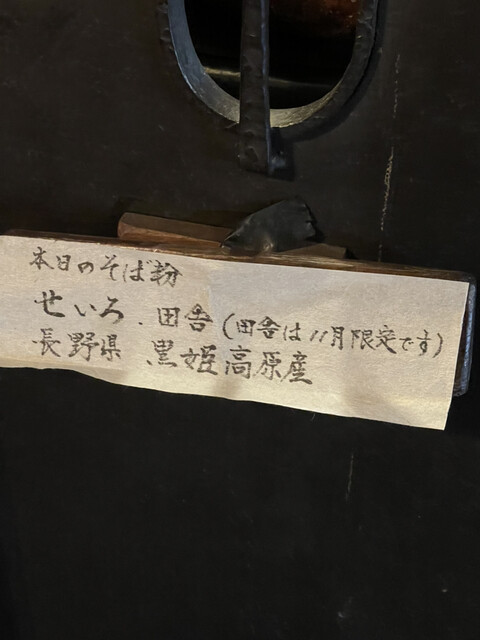 本日のそば粉
せいろ・田舎(田舎は11月限定です)
長野県 黒姫高原産